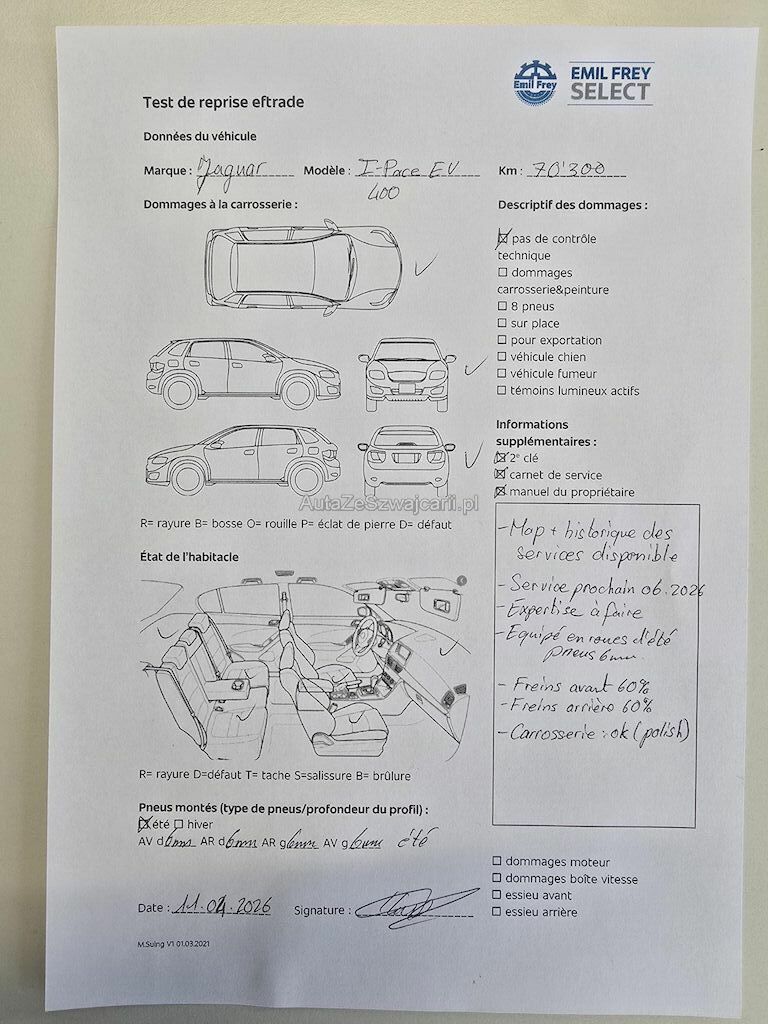 Emil Frey
EMIL FREY
SELECT
Test de reprise eftrade
Données du véhicule
Marque : Jaguar Modèle : I-Pace EV Km : 70'300
400
Dommages à la carrosserie :
Descriptif des dommages :
pas de contrôle
technique
dommages
carrosserie&peinture
8 pneus
sur place
pour exportation
véhicule chien
véhicule fumeur
témoins lumineux actifs
Informations
supplémentaires :
2e clé
carnet de service
manuel du propriétaire
AutaZeSzwajcarii.pl
R= rayure B= bosse O= rouille P= éclat de pierre D= défaut
État de l'habitacle
- Map + historique des
services disponible
- Service prochain 06.2026
- Expertise à faire
- Equipé en roues d'été
pneus 6mm
- Freins avant 60%
- Freins arrière 60%
- Carrosserie : ok (polish)
R= rayure D=défaut T= tache S=salissure B= brûlure
Pneus montés (type de pneus/profondeur du profil) :
été hiver
AV d 6mm AR d 6mm AR g 6mm AV g 6mm été
dommages moteur
dommages boîte vitesse
essieu avant
essieu arrière
Date : 11.04.2026 Signature :
M.Suing V1 01.03.2021